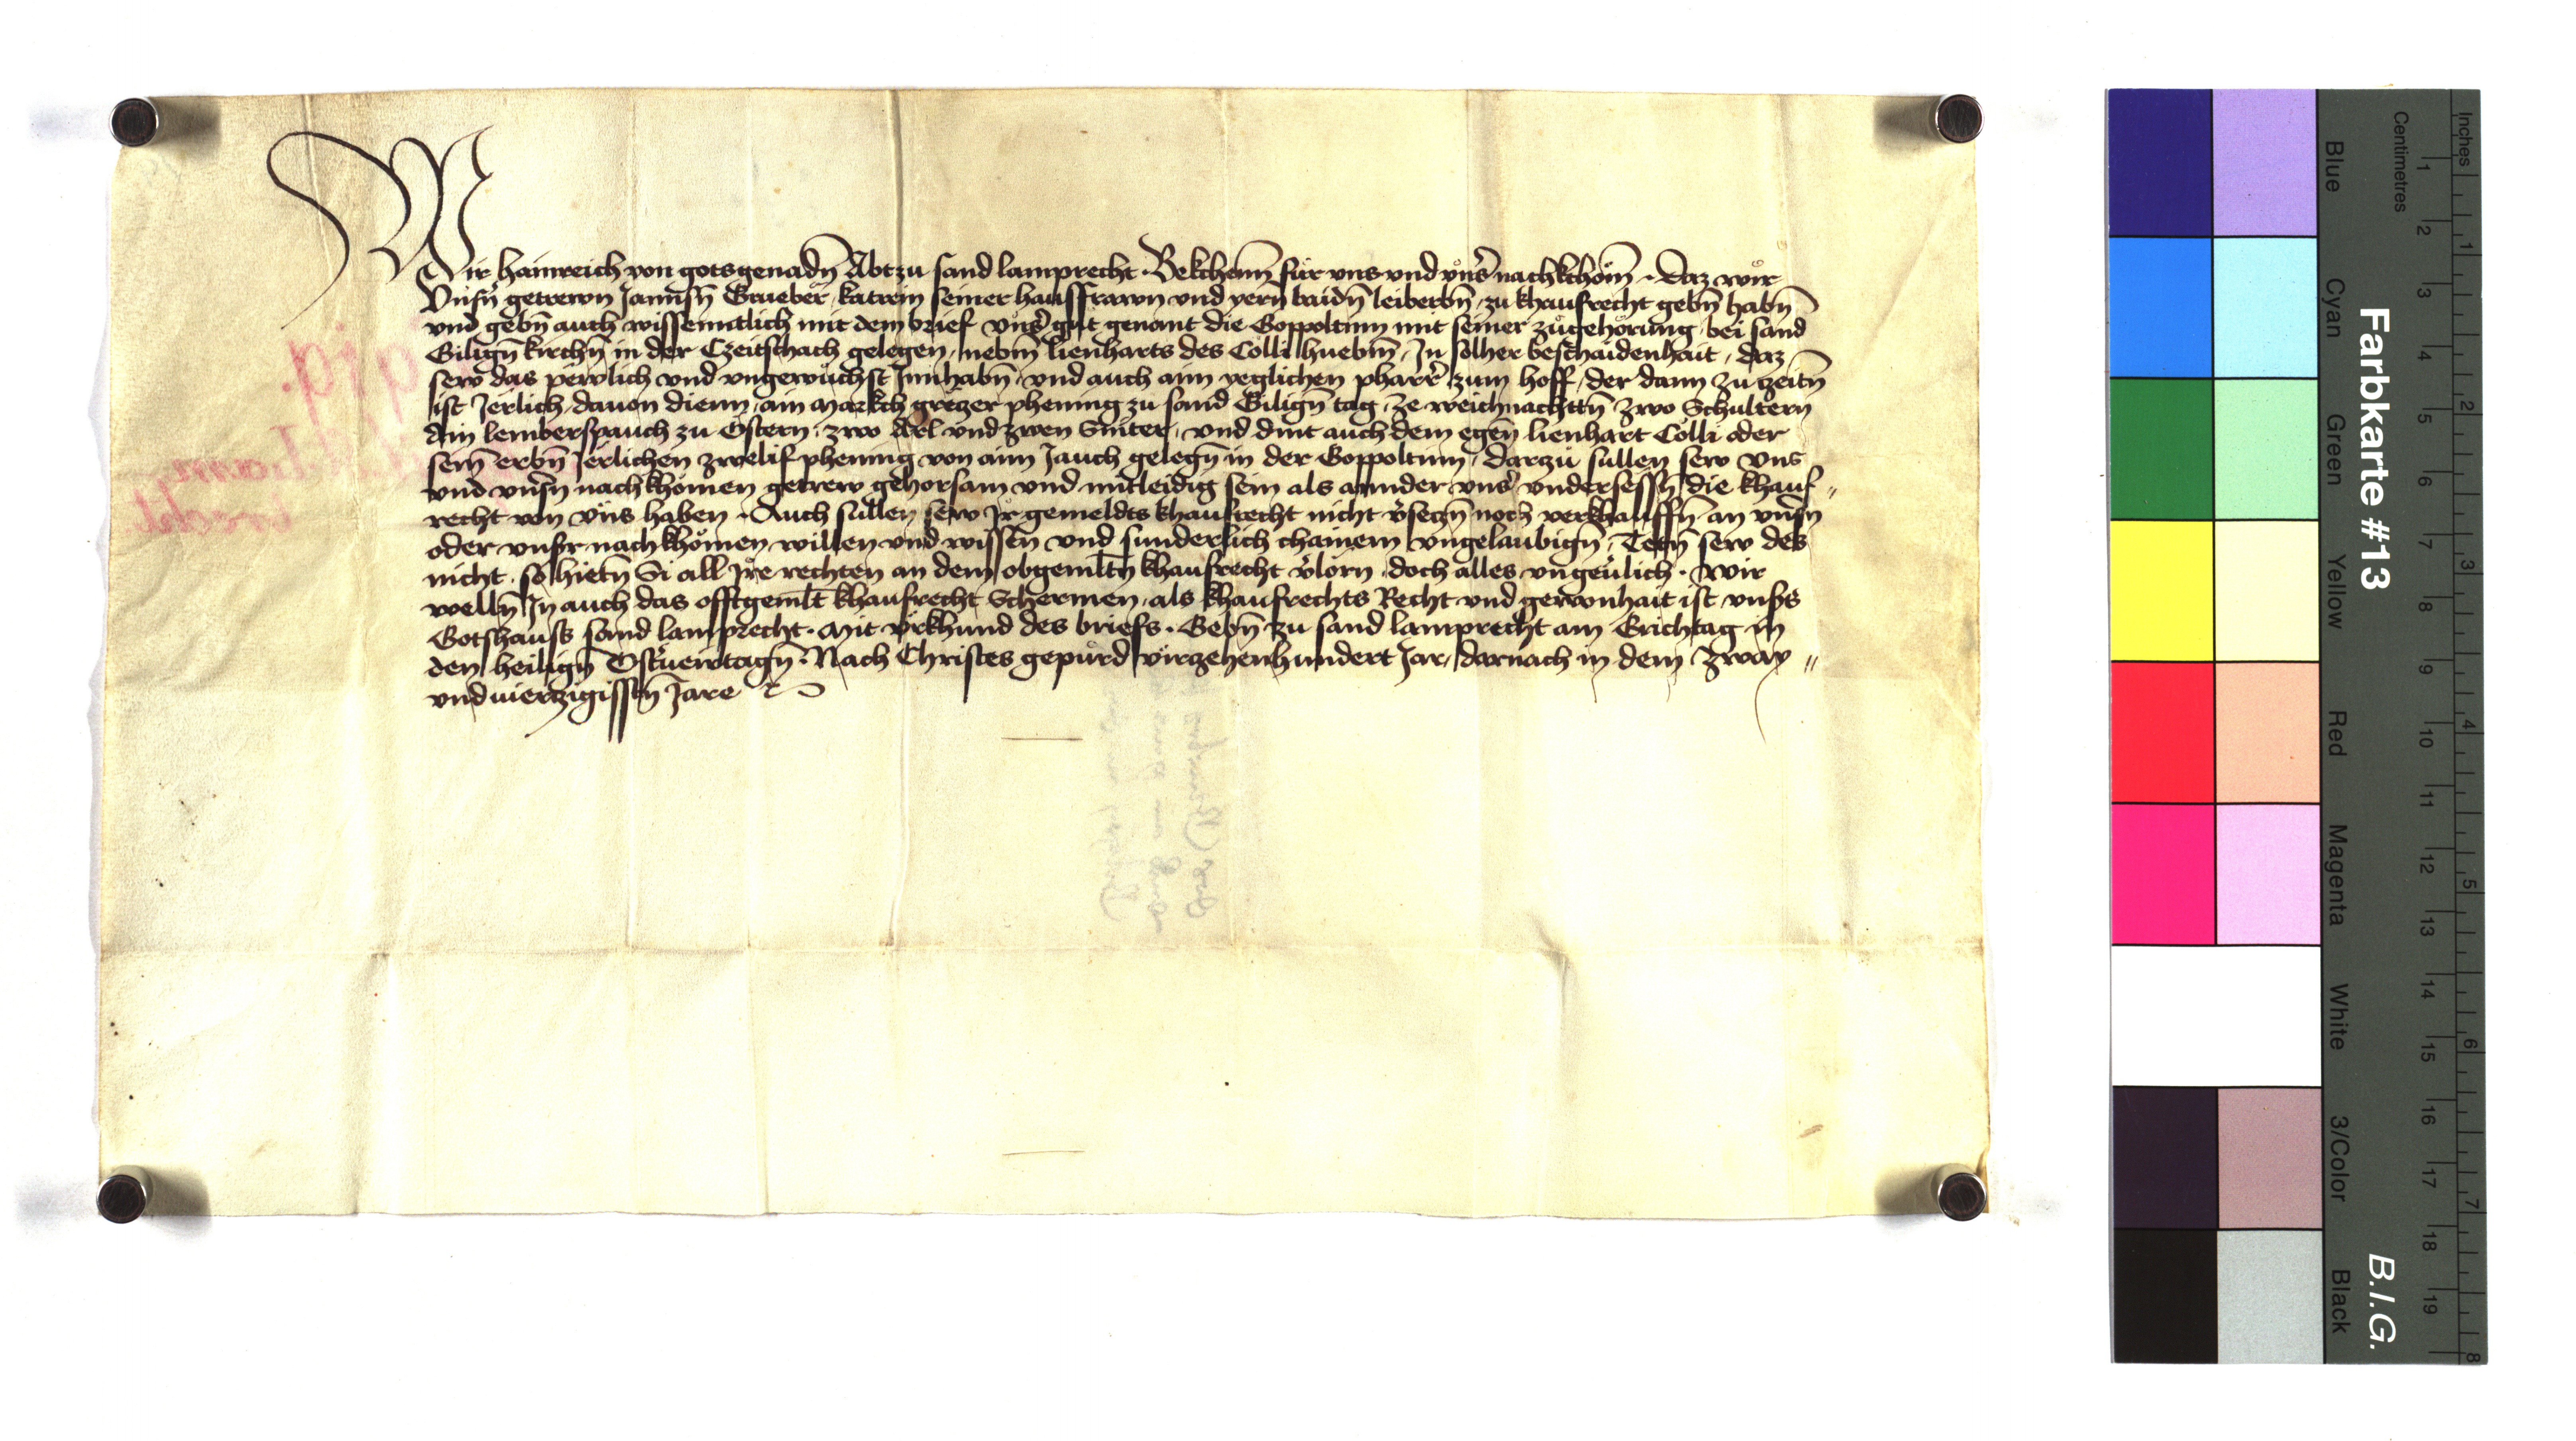 Wir Hainreich von gots genadn̄ Abt zu sand lamprecht · Bekchenn̄ für vns vnd vnsˀ nachkchöm̄ · daz wir
Vnsn̄ getrewn Jannsn̄ Grueber, katrein seiner hausfrawn vnd yern̄ baidn̄ leiberbn̄, zu khaufrecht gebn̄ habn̄
vnd gebn̄ auch wissenntlich mit dem brief vnsˀ gut genant die Goppoltinn mit seiner zugehörung, bei sand
Gilign̄ kirchn̄ in der Czeitschach gelegen, nebm̄ lienharts des Cölli huebm̄, In solher beschaidenhait, daz
sew das pewlich vnd vngewüchst Innhabn̄, vnd auch aim yeglichen pharrˀ zum hoff, der dann zu tzeitn̄
ist Jerlich, dauon dienn, ain markch gretzer phening zu sand Gilign̄ tag, ze weichnachttn̄ zwo Schultern
Ain lemberspauch zu Ostern, zwo Arl vnd zwen Sniter, vnd dint auch dem egen̄ lienhart Cölli oder
sein̄ erbn̄ Jerlichen zwelif phening von aim Jauch gelegn̄ in der Goppoltinn, Darzu sullen sew vns
vnd vnsn̄ nachkhömen getrew gehorsam vnd mitleidig sein als annder vnsˀ vndersessn̄ die khauf〃
recht von vns haben · Auch sullen sew Ir gemeldts khaufrecht nicht v̉setzn̄ noch verkhauffn̄ an vnsn̄
oder vnsr nachkhömen willen vnd wissen̄ vnd sunderlich chainem vngelaubign̄, Tetn̄ sew des
nicht, so hietn̄ Si all Jre rechten an dem obgemltn̄ khaufrecht v̉lorn, doch alles vngeuˀlich · Wir
welln̄ In auch das offtgemlt khaufrecht Schermen, als khaufrechts Recht vnd gewonhait ist vnsˀs
Gotshauss sand lamprecht · Mit vrkhund des briefs · Gebn̄ zu sand lamprecht am Erichtag in
den heilign̄ Ostˀueirtagn̄ · Nach Christes gepurd virzehenhundert Jar, darnach in dem zway〃
vnduierzigissn̄ Jare
Farbkarte #13
B.I.G.
Inches
Centimetres
1 2 3 4 5 6 7 8 9 10 11 12 13 14 15 16 17 18 19
1 2 3 4 5 6 7 8
Blue
Cyan
Green
Yellow
Red
Magenta
White
3/Color
Black